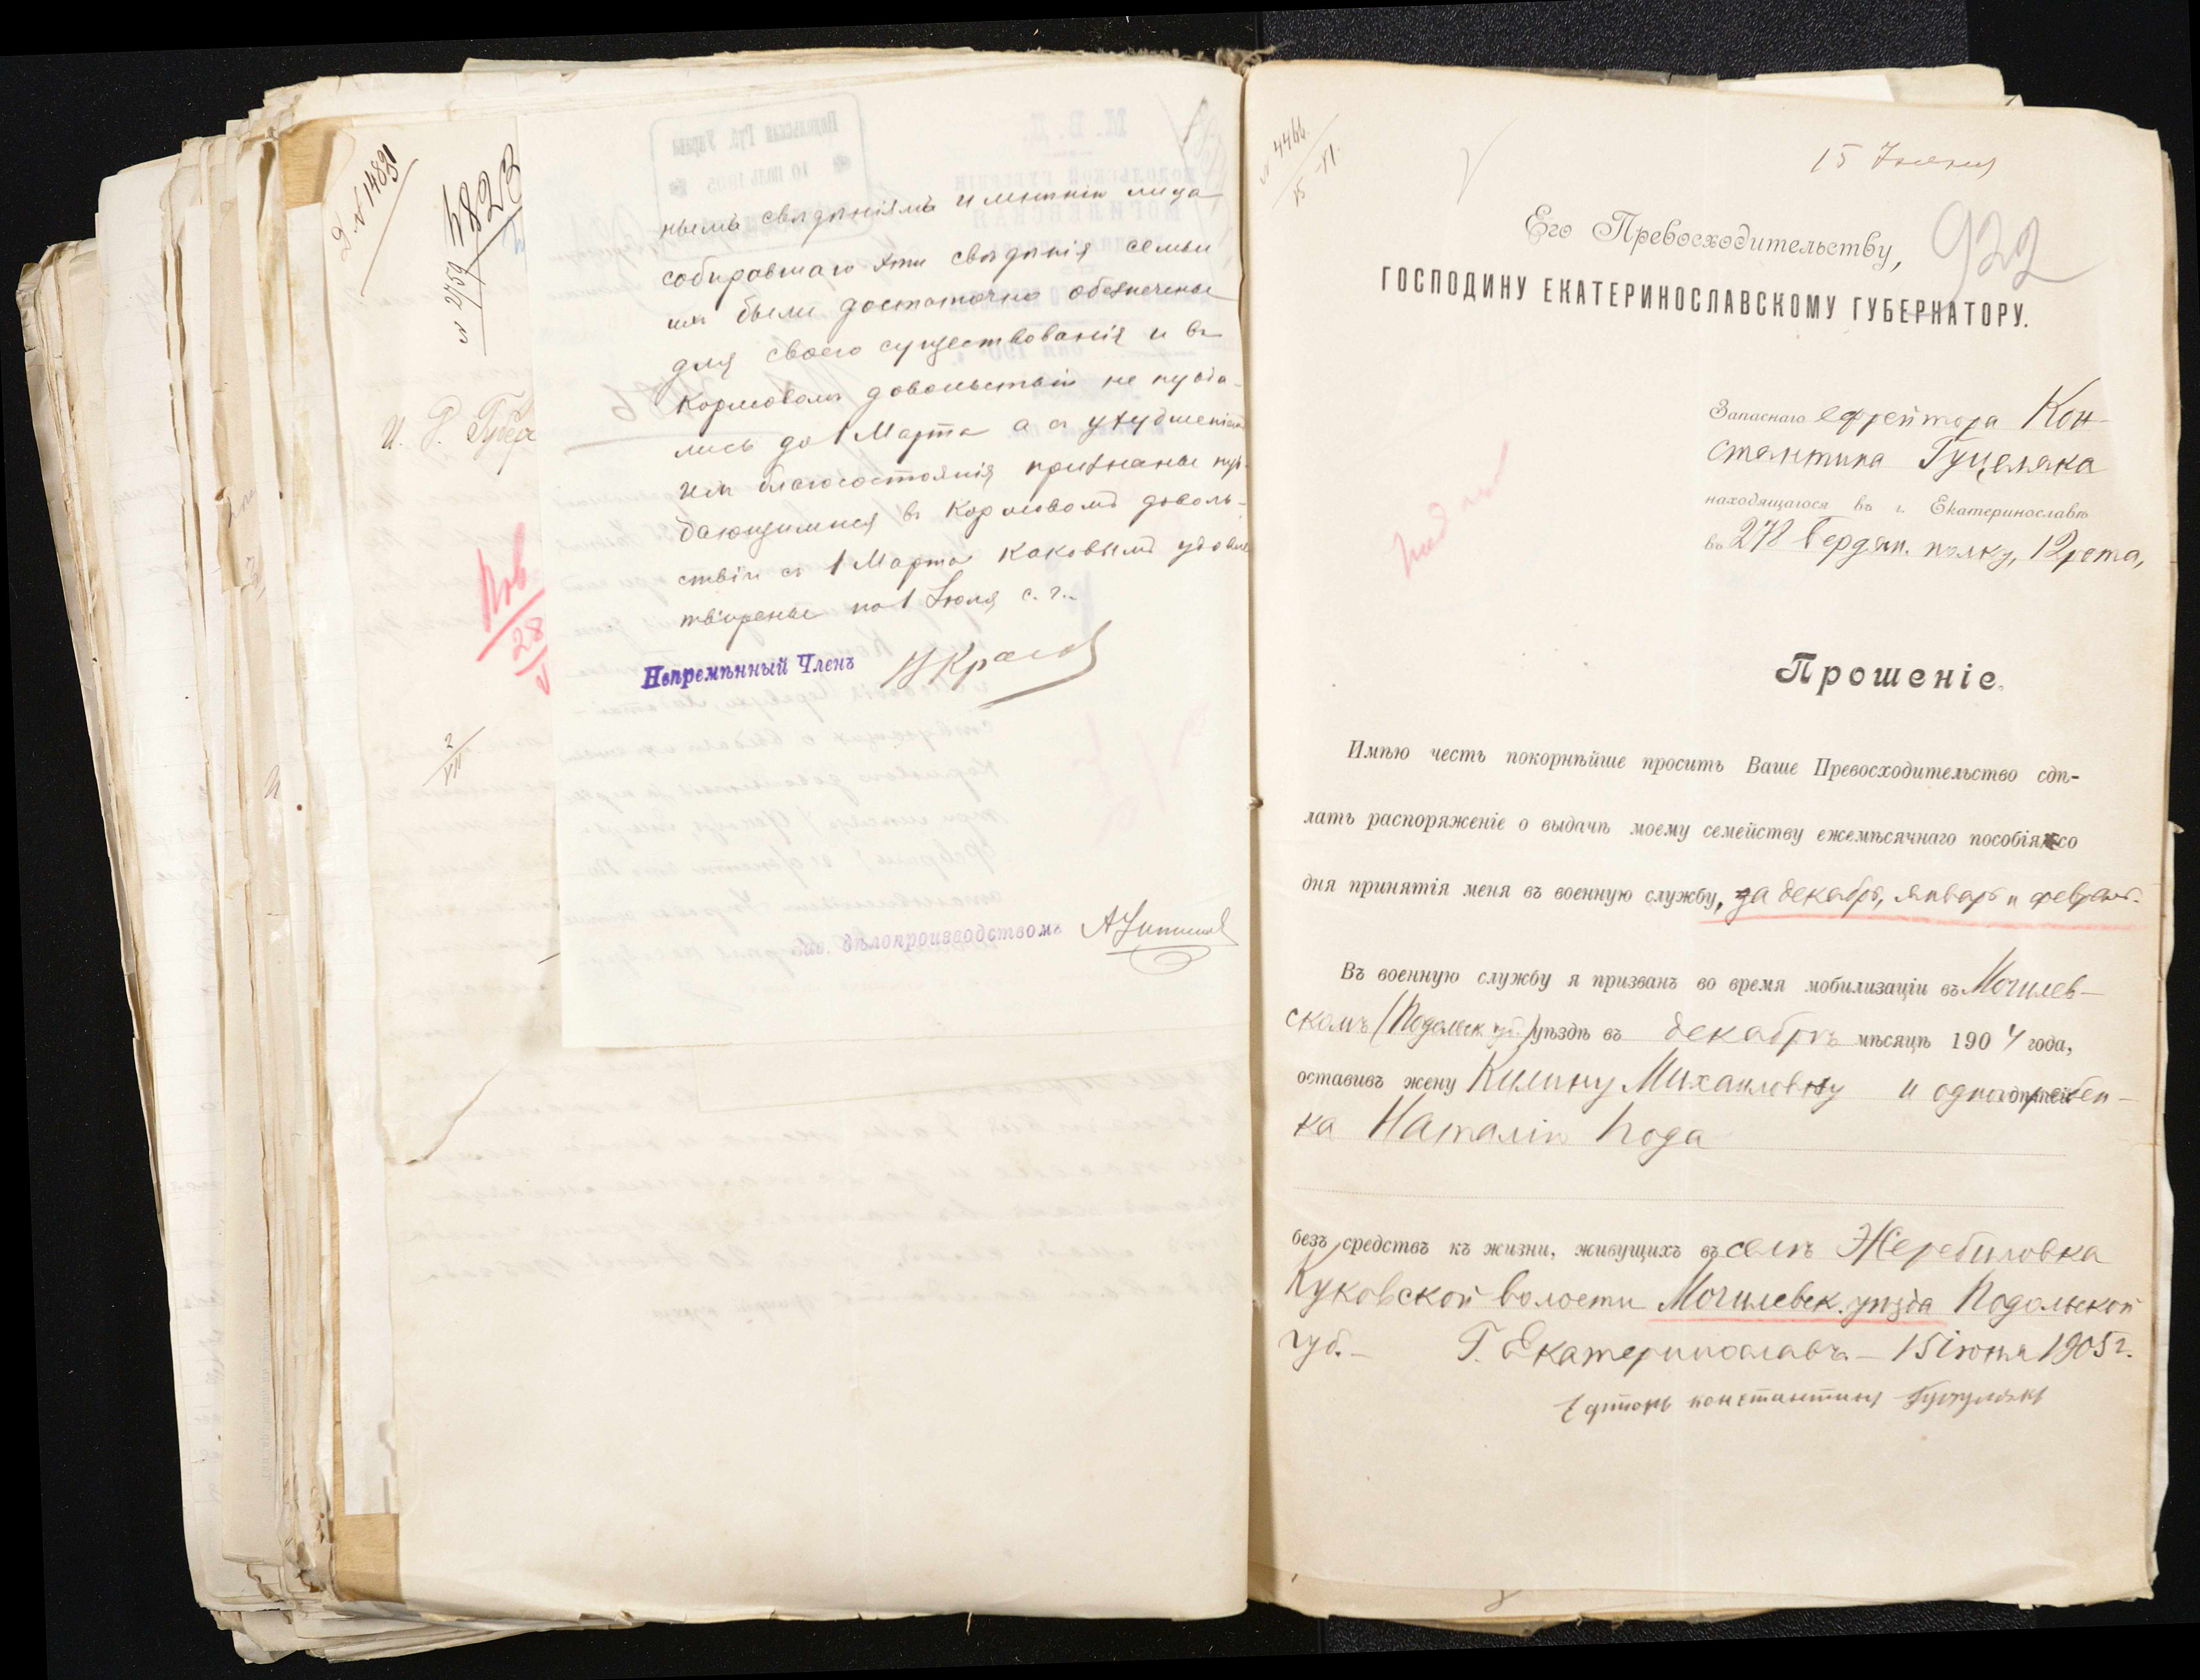 Д. № 14891
№ 2759
4823
И. Р. Губер
28
2
VII
нымъ свѣдѣніямъ и мнѣнію лица
собиравшаго эти свѣдѣнія семьи
ихъ были достаточно обезпечены
для своего существованія и въ
кормовомъ довольствіи не нужда-
лись до 1 Марта а съ ухудшеніемъ
ихъ благосостоянія признаны нуж-
дающимися въ кормовомъ доволь-
ствіи съ 1 Марта каковымъ удовле
творены по 1 Іюля с. г.
Непремѣнный Членъ
Зав. дѣлопроизводствомъ
№ 4466
15 VI.
15 Июня
922
Его Превосходительству,
ГОСПОДИНУ ЕКАТЕРИНОСЛАВСКОМУ ГУБЕРНАТОРУ.
Запаснаго ефрейтора Кон-
стантина Гуцеляка
находящагося въ г. Екатеринославѣ
въ 278 Бердян. полку, 12 рота,
Прошеніе.
Имѣю честь покорнѣйше просить Ваше Превосходительство сдѣ-
лать распоряженіе о выдачѣ моему семейству ежемѣсячнаго пособія со
дня принятія меня въ военную службу, за декабрь, январь и февраль.
Въ военную службу я призванъ во время мобилизаціи въ Могилев-
скомъ (Подольск. губ.) уѣздѣ въ декабрѣ мѣсяцѣ 1904 года,
оставивъ жену Килину Михаиловну и одного дѣтей ребен-
ка Наталію 1 года
безъ средствъ къ жизни, живущихъ въ селѣ Жеребиловка
Куковской волости Могилевск. уѣзда Подольской
губ. – Г. Екатеринославъ. – 15 іюня 1905 г.
константинъ